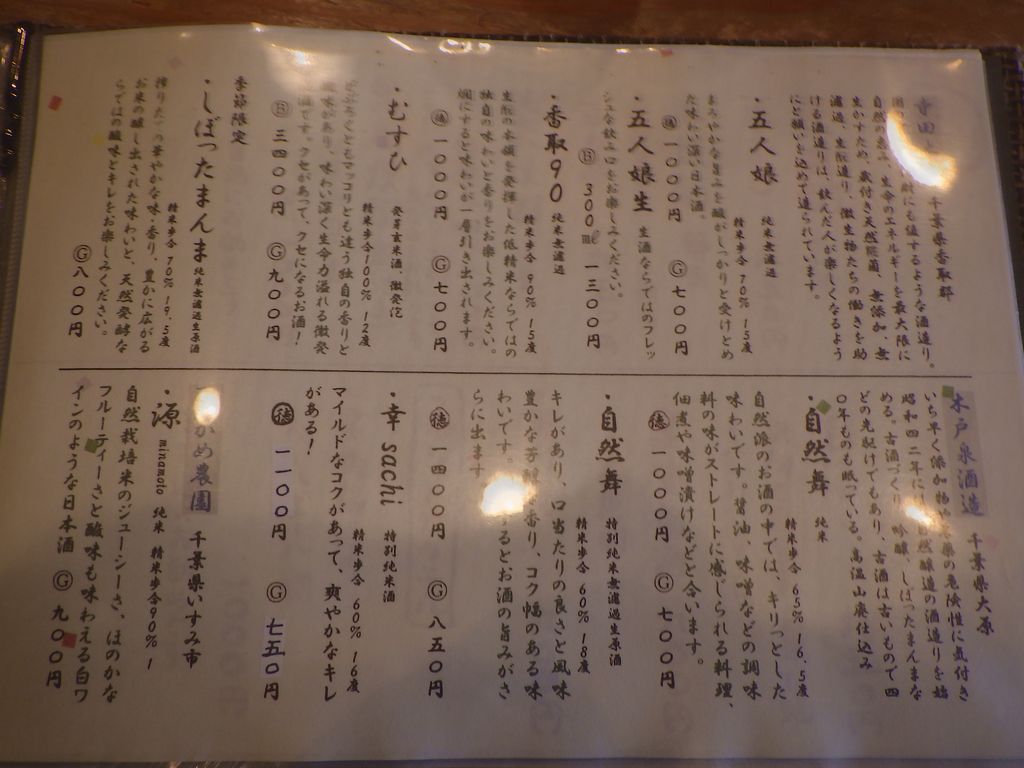 寺田 千葉県香取郡
にも値するような酒造り。
自然の恵み、生命のエネルギーを最大限に
生かすため、蔵付き天然乳酸菌、無添加、無
濾過、生酛造り、微生物たちの働きを助
ける酒造りは、飲んだ人が楽しくなるよう
にと願いを込めて造られています。
・五人娘 純米無濾過
精米歩合 70% 15度
まろやかな旨みを酸がしっかりと受けとめ
た味わい深い日本酒。
徳 一〇〇〇円 Ⓖ 七〇〇円
・五人娘生 生酒ならではのフレッ
シュな飲み口をお楽しみください。
Ⓑ 300㎖ 一三〇〇円
・香取90 純米無濾過
精米歩合 90% 15度
生酛の本領を発揮した低精米ならではの
独自の味わいと香りをお楽しみください。
燗にすると味わいが一層引き出されます。
徳 一〇〇〇円 Ⓖ 七〇〇円
・むすひ 発芽玄米酒、微発泡
精米歩合100% 12度
どぶろくともマッコリとも違う独自の香りと
酸味があり、味わい深く生命力溢れる微発
酒です。クセがあって、クセになるお酒！
Ⓑ 三四〇〇円 Ⓖ 九〇〇円
季節限定
・しぼったまんま 純米無濾過生原酒
精米歩合 70% 19.5度
搾りたての華やかな味・香り、豊かに広がる
お米の醸し出された味わいと、天然発酵な
らではの酸味とキレをお楽しみください。
Ⓖ 八〇〇円
木戸泉酒造 千葉県大原
いち早く添加物や の危険性に気付き
昭和四二年に 自然醸造の酒造りを始
める。古酒づくり、吟醸、しぼったまんまな
どの先駆けでもあり、古酒は古いもので四
〇年ものも眠っている。高温山廃仕込み
・自然舞 純米
精米歩合 65% 16.5度
自然派のお酒の中では、キリっとした
味わいです。醤油、味噌などの調味
料の味がストレートに感じられる料理、
佃煮や味噌漬けなどと合います。
徳 一〇〇〇円 Ⓖ 七〇〇円
・自然舞 特別純米無濾過生原酒
精米歩合 60% 18度
キレがあり、口当たりの良さと風味
豊かな芳醇 香り、コク幅のある味
わいです。 するとお酒の旨みがさ
らに出ます
徳 一四〇〇円 Ⓖ 八五〇円
・幸 sachi 特別純米酒
精米歩合 60% 16度
マイルドなコクがあって、爽やかなキレ
がある！
徳 一一〇〇円 Ⓖ 七五〇円
かめ農園 千葉県いすみ市
・源 minamoto 純米 精米歩合90% 1
自然栽培米のジューシーさ、ほのかな
フルーティーさと酸味も味わえる白ワ
インのような日本酒 Ⓖ 九〇〇円